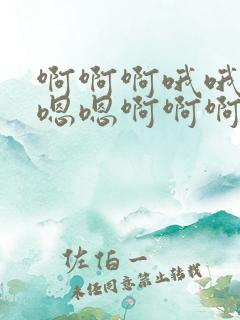 啊啊啊哦哦
嗯嗯啊啊啊
佐伯一
未经同意禁止转载